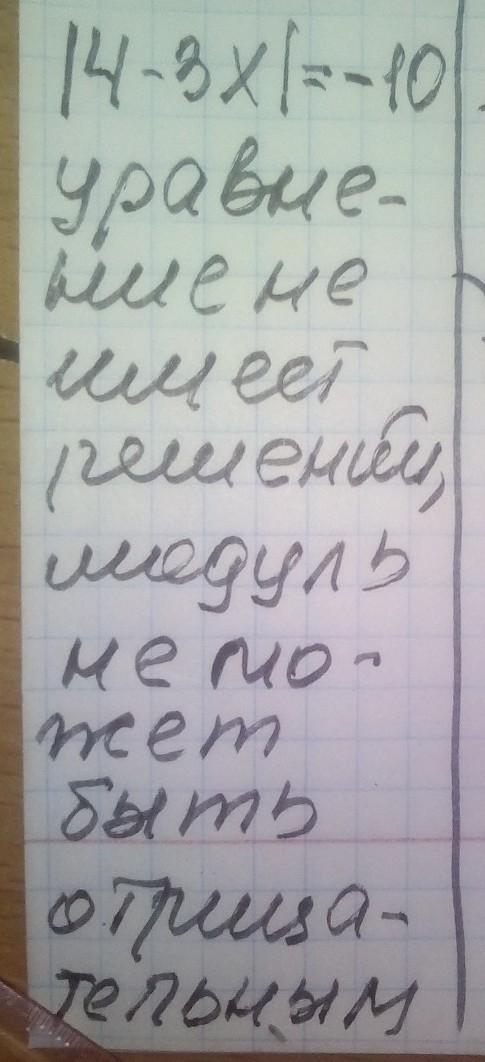 |4-3x|=-10
уравне-
ние не
имеет
решений,
модуль
не мо-
жет
быть
отрица-
тельным